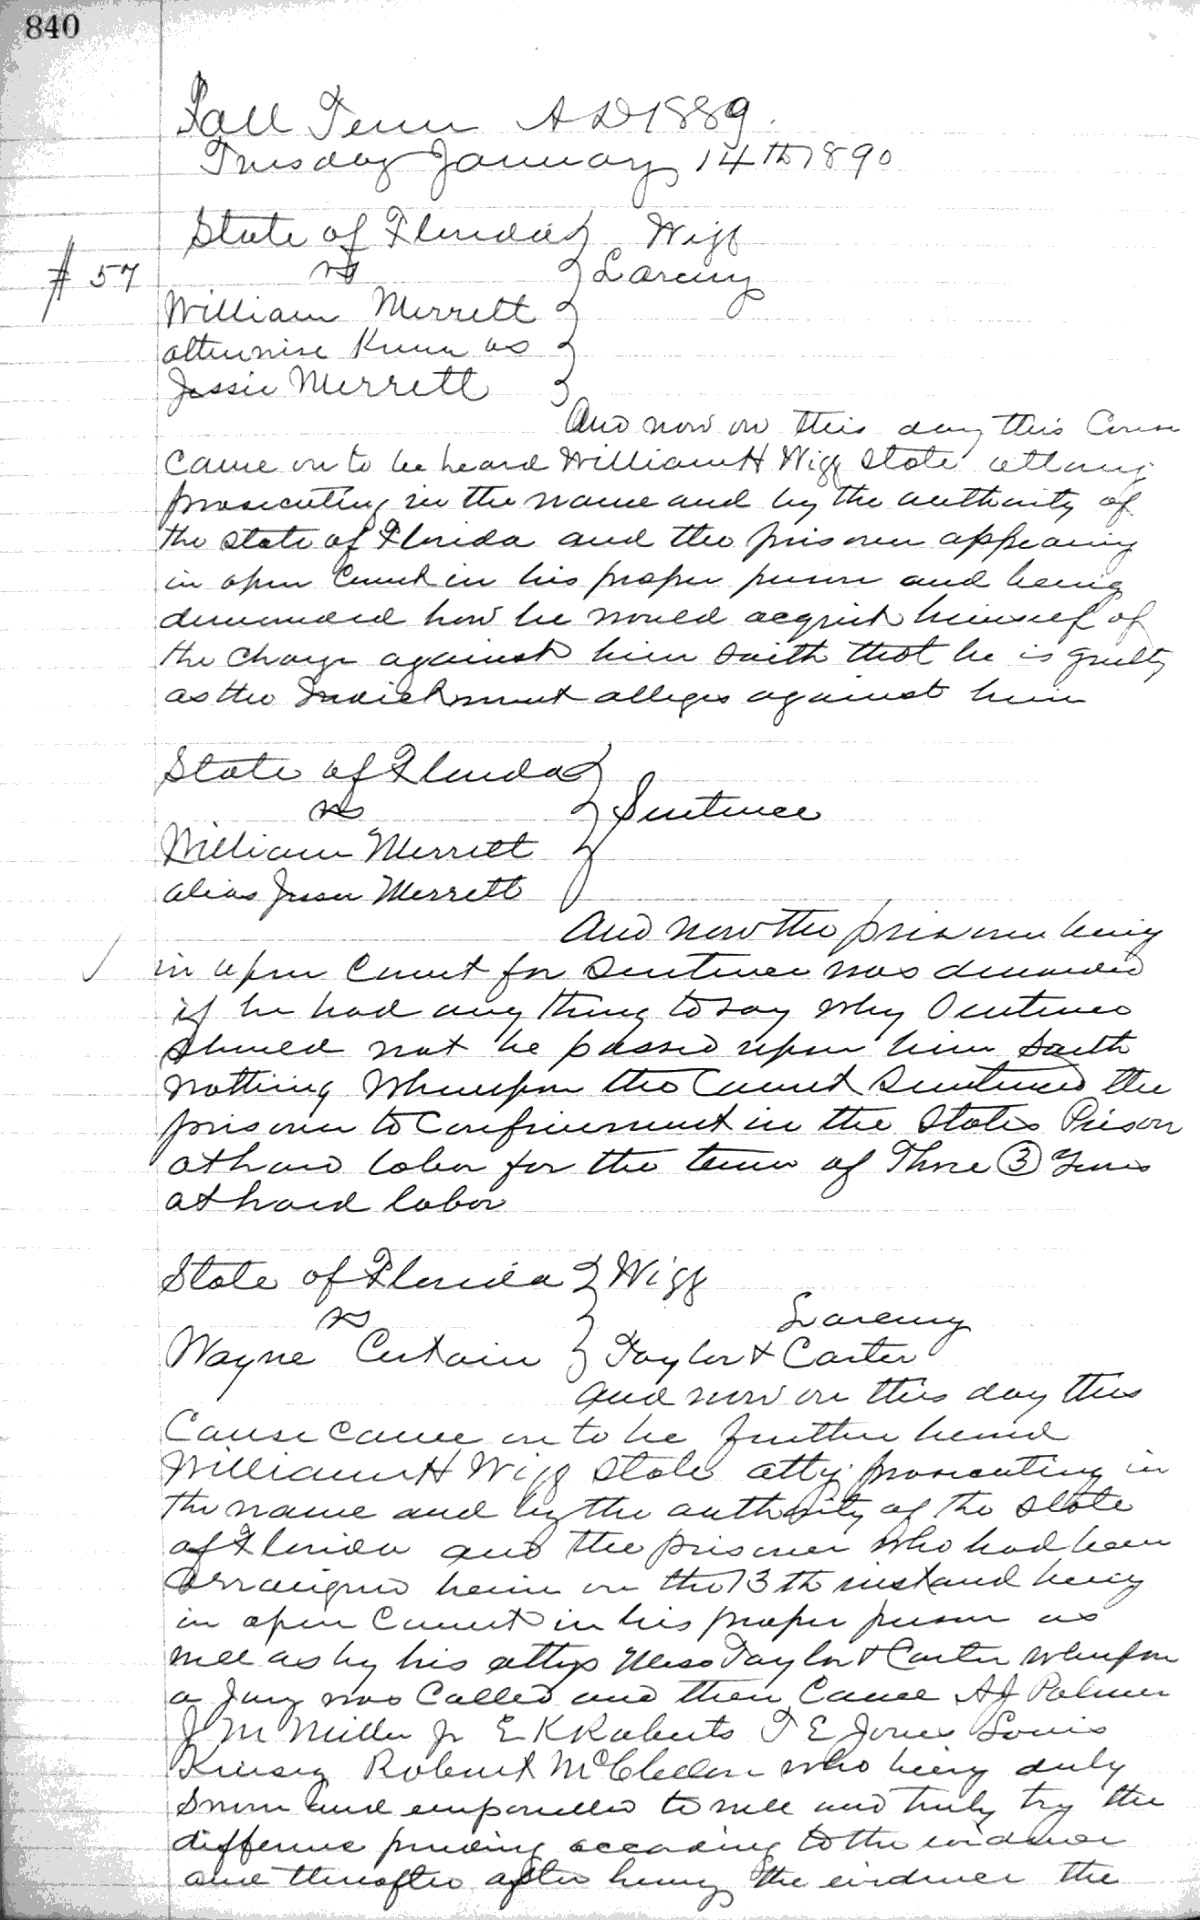 840
Fall Term A D 1889.
Tuesday January 14th 1890
State of Florida } Wigg
# 57 vs } Larceny
William Merrett }
otherwise Known as }
Jessie Merrett }
And now on this day this Cause
Came on to be heard William H Wigg State attorney
prosecuting in the name and by the authority of
the state of Florida and the prisoner appearing
in open Court in his proper person and being
demanded how he would acquit himself of
the charge against him saith that he is guilty
as the Indictment alleges against him
State of Florida }
vs } Sentence
William Merrett }
alias Jesse Merrett
And now the prisoner being
in open Court for Sentence was demanded
if he had any thing to say why Sentence
should not be passed upon him saith
nothing Whereupon the Court Sentenced the
prisoner to Confinement in the States Prison
at hard labor for the term of Three (3) Years
at hard labor
State of Florida } Wigg
vs } Larceny
Wayne Certain } Taylor & Carter
And now on this day this
Cause came on to be further heard
William H Wigg State atty prosecuting in
the name and by the authority of the state
of Florida and the prisoner who had been
arraigned herein on the 13th inst and being
in open Court in his proper person as
well as by his attys Mess Taylor & Carter whereupon
a Jury was Called and then Came A J Palmer
J M Miller Jr E K Roberts T E Jones Louis
Kinsey Robert McClellan who being duly
Sworn and empanelled to well and truly try the
difference pending according to the evidence
and thereafter after hearing the evidence the